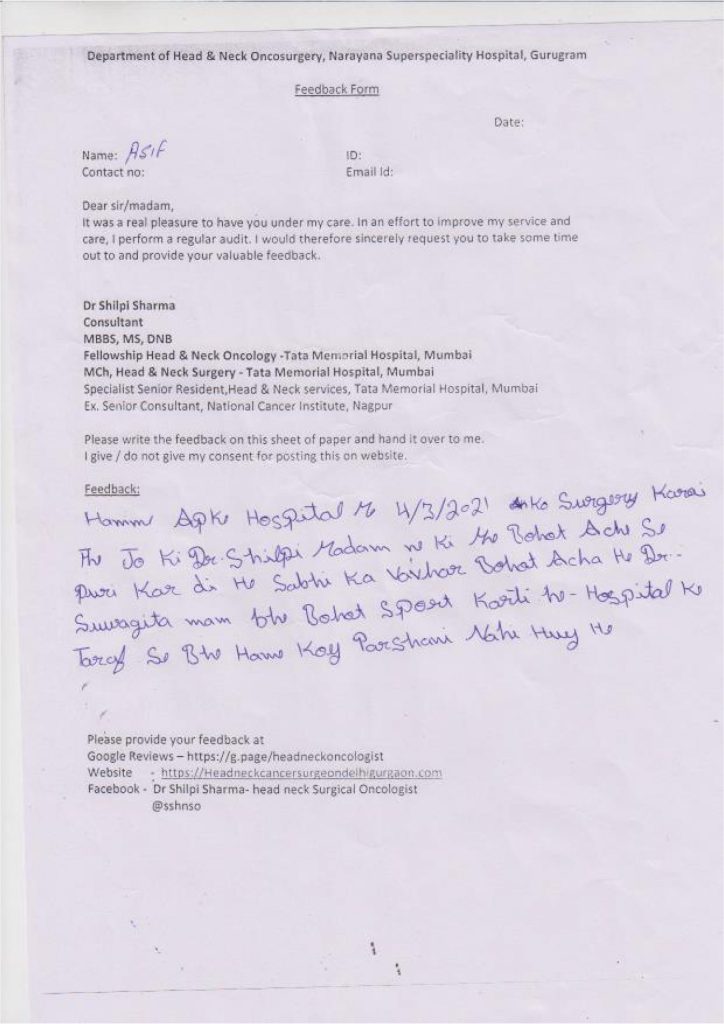 Department of Head & Neck Oncosurgery, Narayana Superspeciality Hospital, Gurugram
Feedback Form
Date:
Name: ASIF
ID:
Contact no:
Email Id:
Dear sir/madam,
It was a real pleasure to have you under my care. In an effort to improve my service and
care, I perform a regular audit. I would therefore sincerely request you to take some time
out to and provide your valuable feedback.
Dr Shilpi Sharma
Consultant
MBBS, MS, DNB
Fellowship Head & Neck Oncology -Tata Memorial Hospital, Mumbai
MCh, Head & Neck Surgery - Tata Memorial Hospital, Mumbai
Specialist Senior Resident,Head & Neck services, Tata Memorial Hospital, Mumbai
Ex. Senior Consultant, National Cancer Institute, Nagpur
Please write the feedback on this sheet of paper and hand it over to me.
I give / do not give my consent for posting this on website.
Feedback:
Hamne Apke Hospital Me 4/3/2021 Ko Surgery Karai
The Jo Ki Dr. Shilpi Madam ne Ki He Bohot Ache Se
Puri Kar di He Sabhi Ka Vavhar Bohat Acha He Dr.-
Suwagita mam bhe Bohot Sport Karti he - Hospital Ke
Taraf Se Bhe Hame Koy Parshani Nahi Huy He
Please provide your feedback at
Google Reviews – https://g.page/headneckoncologist
Website - https://Headneckcancersurgeondelhigurgaon.com
Facebook - Dr Shilpi Sharma- head neck Surgical Oncologist
@sshnso